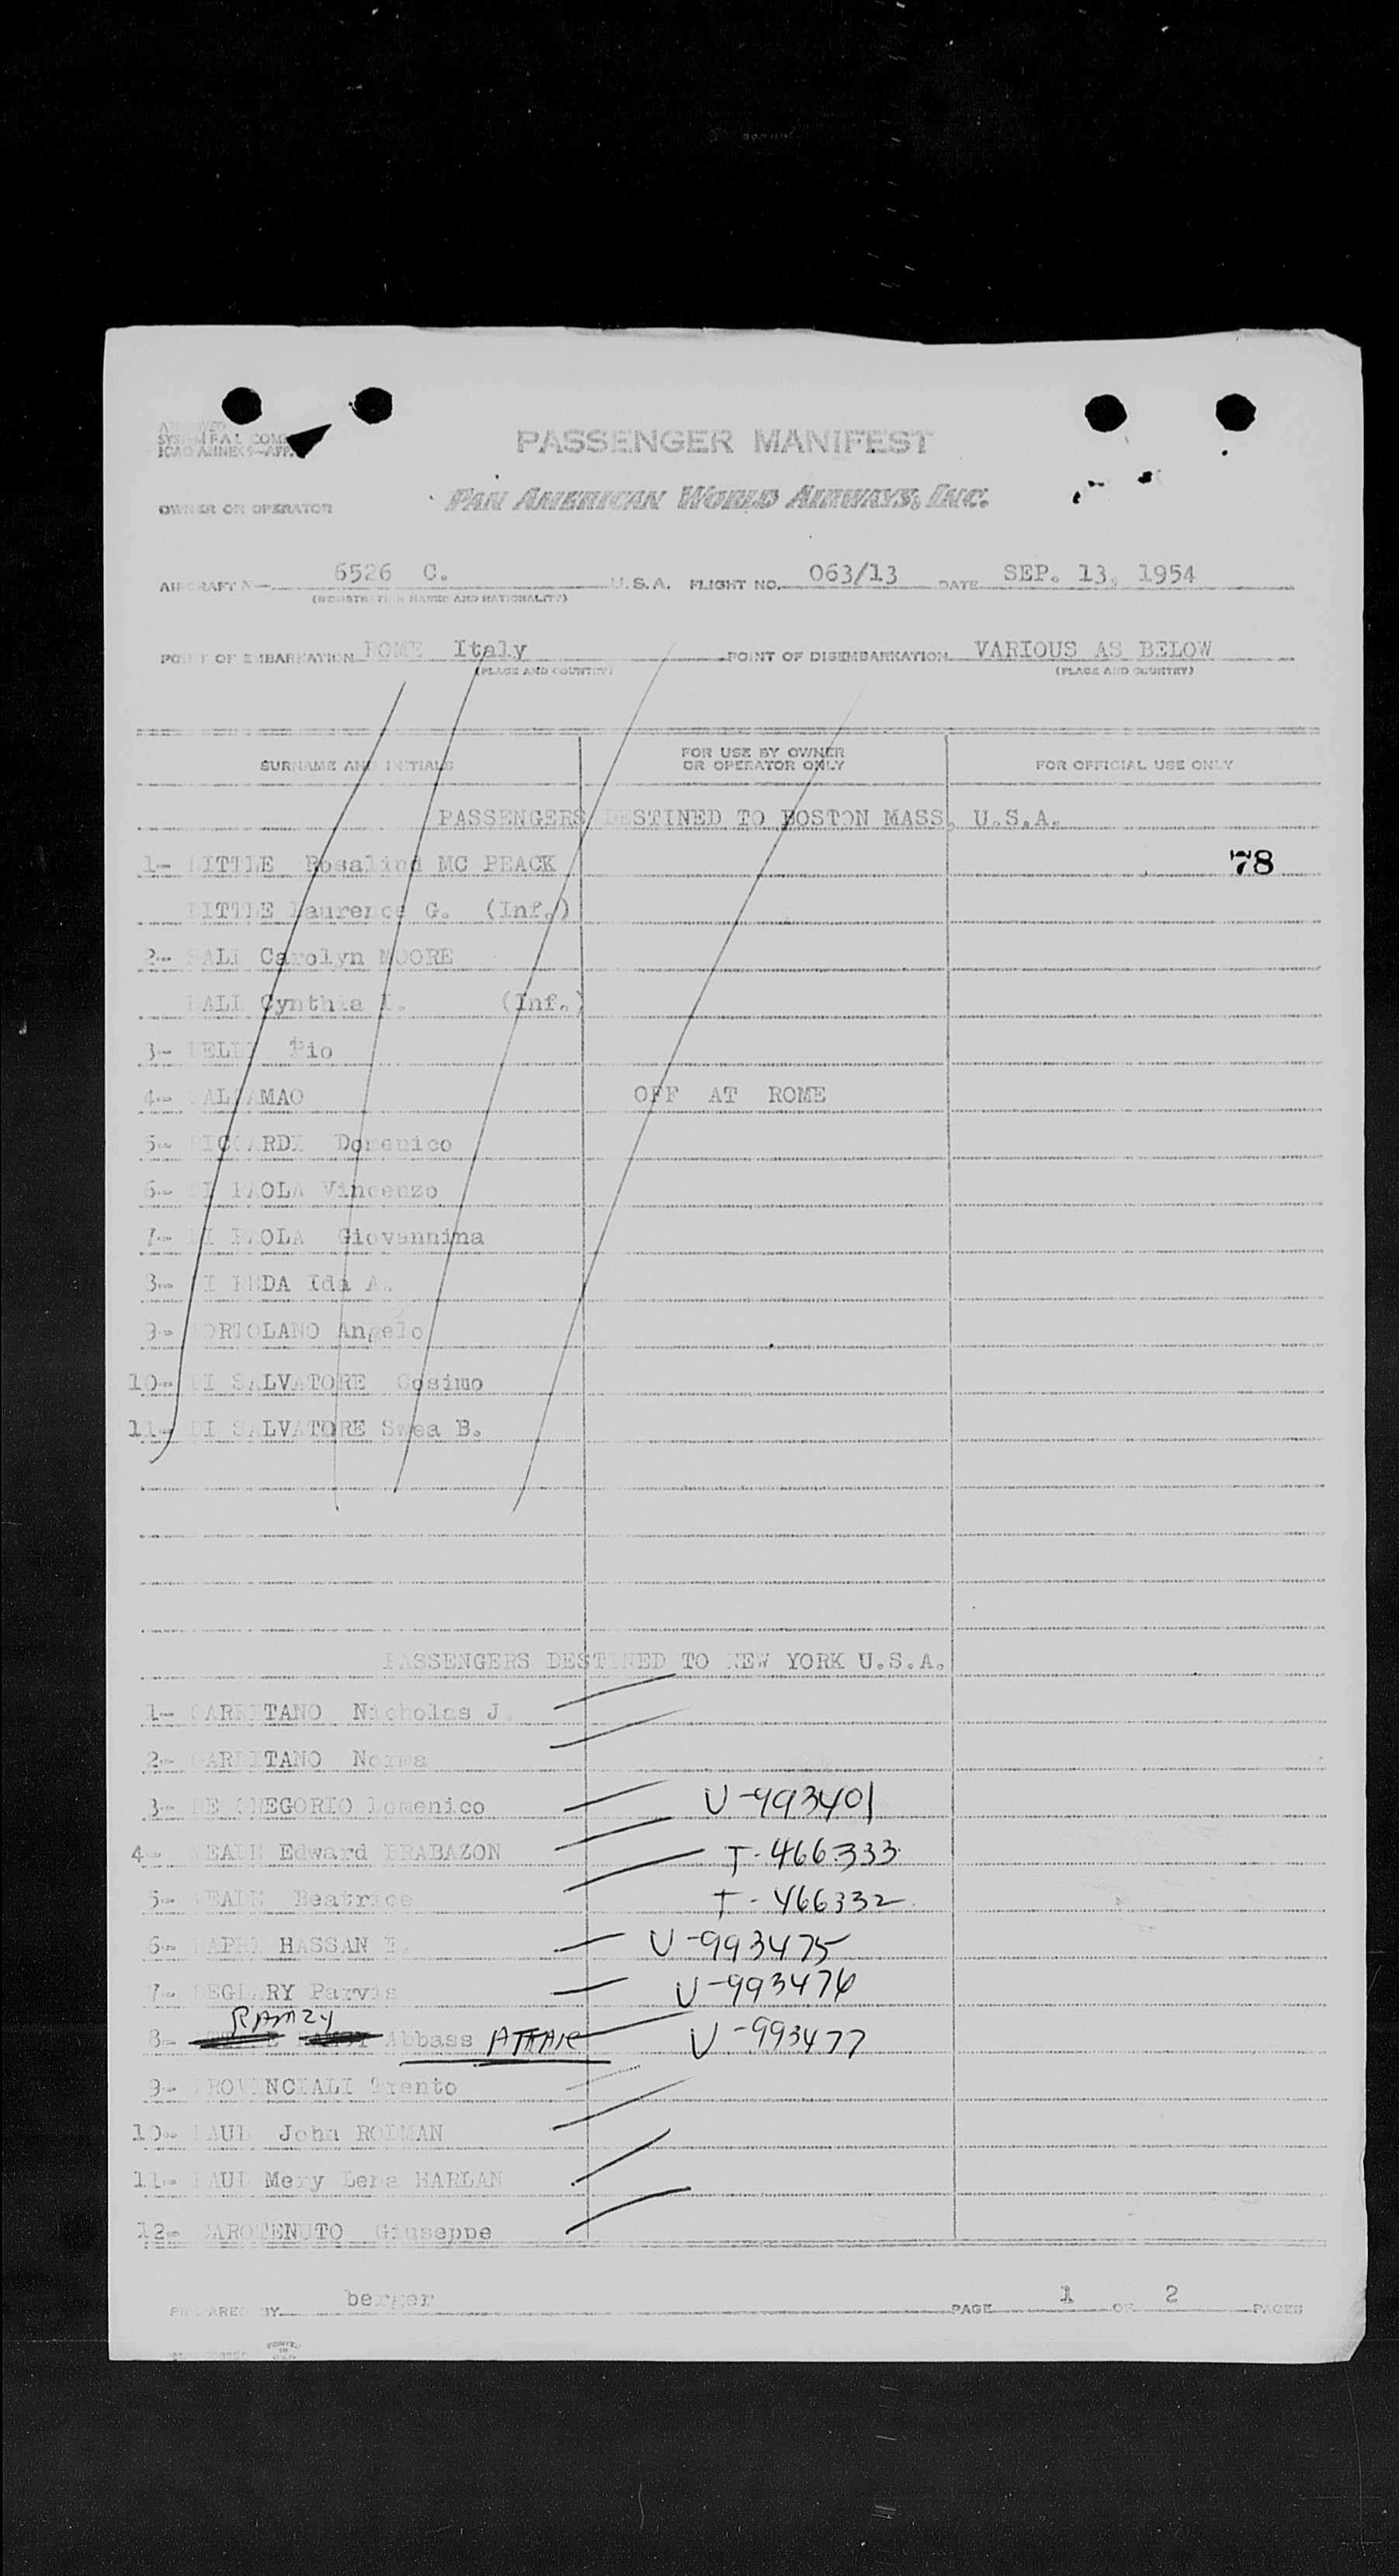 PASSENGER MANIFEST
ICAO ANNEX 9—APP.
OWNER OR OPERATOR
PAN AMERICAN WORLD AIRWAYS, INC.
AIRCRAFT N— 6526 C. U.S.A. FLIGHT NO. 063/13 DATE SEP. 13, 1954
(REGISTRATION MARKS AND NATIONALITY)
POINT OF EMBARKATION ROME Italy POINT OF DISEMBARKATION VARIOUS AS BELOW
(PLACE AND COUNTRY) (PLACE AND COUNTRY)
SURNAME AND INITIALS FOR USE BY OWNER OR OPERATOR ONLY FOR OFFICIAL USE ONLY
PASSENGERS DESTINED TO BOSTON MASS, U.S.A.
1- LITTLE Rosalind MC PEACK 78
LITTLE Laurence G. (Inf.)
2- HALL Carolyn MOORE
HALL Cynthia (Inf.)
3- Pio
4- OFF AT ROME
5- RICCARDI Domenico
6- DI PAOLA Vincenzo
7- DI PAOLA Giovannina
8- Ida A.
9- ORTOLANO Angelo
10- DI SALVATORE Cosimo
11- DI SALVATORE Swea B.
PASSENGERS DESTINED TO NEW YORK U.S.A.
1- Nicholas J.
2- Norma
3- DE GREGORIO Domenico U-993401
4- Edward BRABAZON T-466333
5- Beatrice T-466332
6- HASSAN U-993475
7- Parvis U-993476
RAMZY
8- Abbass ATTAR U-993477
9- PROVINCIALI Trento
10- PAUL John RODMAN
11- PAUL Mery Lena HARLAN
12- CAROTENUTO Giuseppe
PREPARED BY berger PAGE 1 OF 2 PAGES